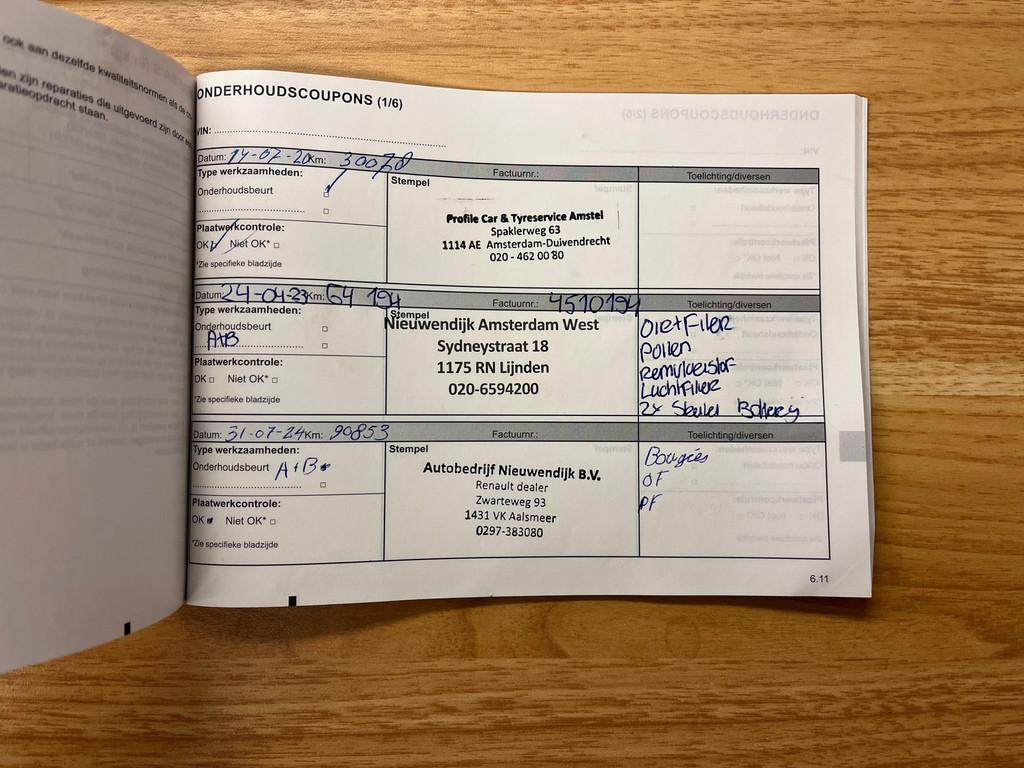 ook aan dezelfde kwaliteitsnormen als de
zijn reparaties die uitgevoerd zijn door
staan.
ONDERHOUDSCOUPONS (1/6)
VIN:
Datum: 14-07-20 Km: 30078
Factuurnr.:
Toelichting/diversen
Type werkzaamheden:
Onderhoudsbeurt
Stempel
Profile Car & Tyreservice Amstel
Spaklerweg 63
1114 AE Amsterdam-Duivendrecht
020 - 462 00 80
Plaatwerkcontrole:
OK Niet OK*
*Zie specifieke bladzijde
Datum: 24-04-23 Km: 64 194
Factuurnr.: 4510194
Toelichting/diversen
Type werkzaamheden:
Onderhoudsbeurt
A+B
Stempel
Nieuwendijk Amsterdam West
Sydneystraat 18
1175 RN Lijnden
020-6594200
Pollen
Plaatwerkcontrole:
OK Niet OK*
*Zie specifieke bladzijde
2x
Datum: 31-07-24 Km: 90853
Factuurnr.:
Toelichting/diversen
Type werkzaamheden:
Onderhoudsbeurt A+B
Stempel
Autobedrijf Nieuwendijk B.V.
Renault dealer
Zwarteweg 93
1431 VK Aalsmeer
0297-383080
Bougies
OF
PF
Plaatwerkcontrole:
OK Niet OK*
*Zie specifieke bladzijde
6.11